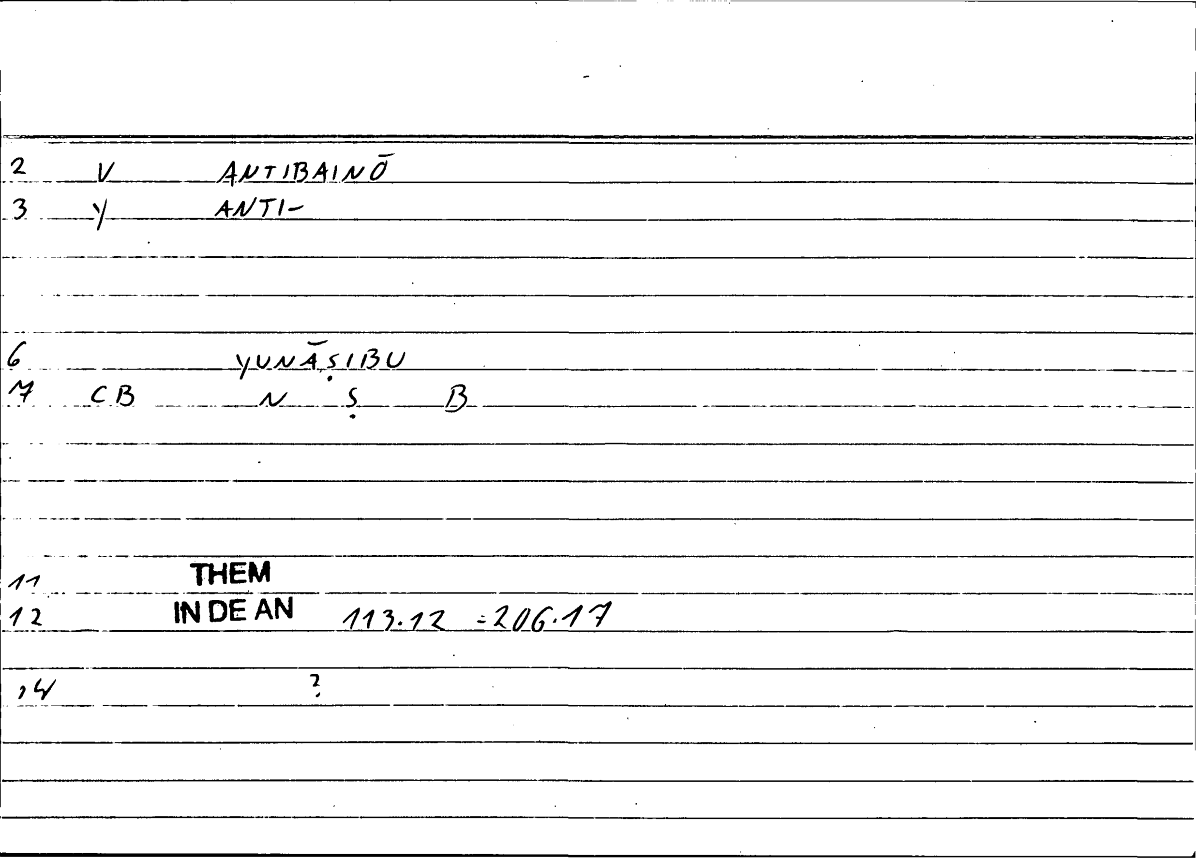 2 V ANTIBAINŌ
3 Y ANTI-
6 YUNĀṢIBU
7 CB N Ṣ B
11 THEM
12 IN DE AN 113.12 =206.17
14 ?